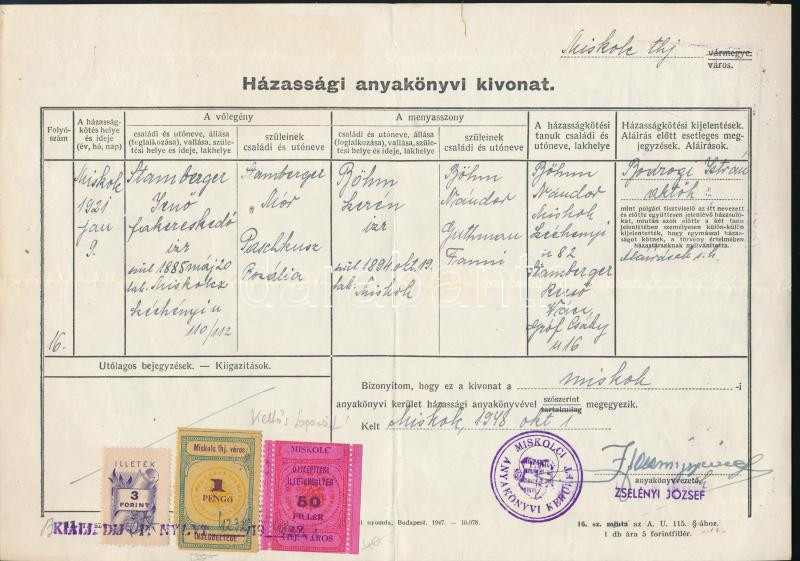 Miskolc thj vármegye.
város.
Házassági anyakönyvi kivonat.
Folyó-
szám
A házasság-
kötés helye
és ideje
(év, hó, nap)
A vőlegény
családi és utóneve, állása
(foglalkozása), vallása, szüle-
tési helye és ideje, lakhelye
szüleinek
családi és utóneve
A menyasszony
családi és utóneve, állása
(foglalkozása), vallása, szüle-
tési helye és ideje, lakhelye
szüleinek
családi és utóneve
A házasságkötési
tanuk családi és
utóneve, lakhelye
Házasságkötési kijelentések.
Aláírás előtt esetleges meg-
jegyzések. Aláírások.
16.
Miskolc
1921
jan
9.
Stamberger
Jenő
fakereskedő
izr
szül 1885 máj 20
lak. Miskolcz
Széchényi u
110/112
Stamberger
Mór
Paschkusz
Rozália
Böhm
Szeren
izr
szül 1894 okt. 19.
lak. Miskolc
Böhm
Nándor
Guthman
Fanni
Böhm
Nándor
Miskolc
Széchenyi
u 82
Stamberger
Rezső
Vác
Gróf Csáky
u 16
Bodrogi István
mint polgári tisztviselő az itt nevezett
és előtte együttesen jelenlévő házasuló-
kat, miután azok előtte a két tanu
jelenlétében személyesen külön-külön
kijelentették, hogy egymással háza-
ságot kötnek, a törvény értelmében
házastársaknak nyilvánította.
Aláírások s. k.
Utólagos bejegyzések. — Kiigazítások.
Bizonyítom, hogy ez a kivonat a miskolc -i
anyakönyvi kerület házassági anyakönyvével szószerint
tartalmilag megegyezik.
Kelt Miskolc, 1948 okt 1
MISKOLCI
ANYAKÖNYVI KERÜLET
anyakönyvvezető.
ZSELÉNYI JÓZSEF
ILLETÉK
3
FORINT
Miskolc thj. város
1
PENGŐ
INSÉGBÉLYEGE
MISKOLC
ÚJJÁÉPÍTÉSI
ILLETÉKBÉLYEG
50
FILLÉR
THJ. VÁROS
nyomda, Budapest. 1947. — 10.078.
16. sz. minta az A. U. 115. §-ához.
1 db ára 5 forintfillér.
darabanth